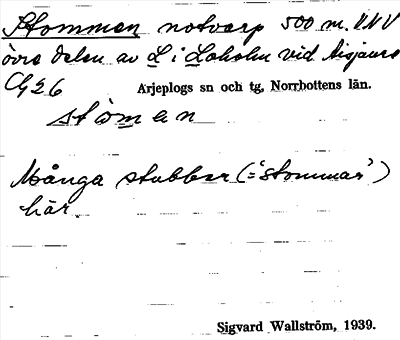 Stommen notvarp 500 m. VNV
övre delen av L i Laholm vid Aisjaure
C4g26
Arjeplogs sn och tg, Norrbottens län.
stòmen
Många stubbar (='stommar')
här.
Sigvard Wallström, 1939.